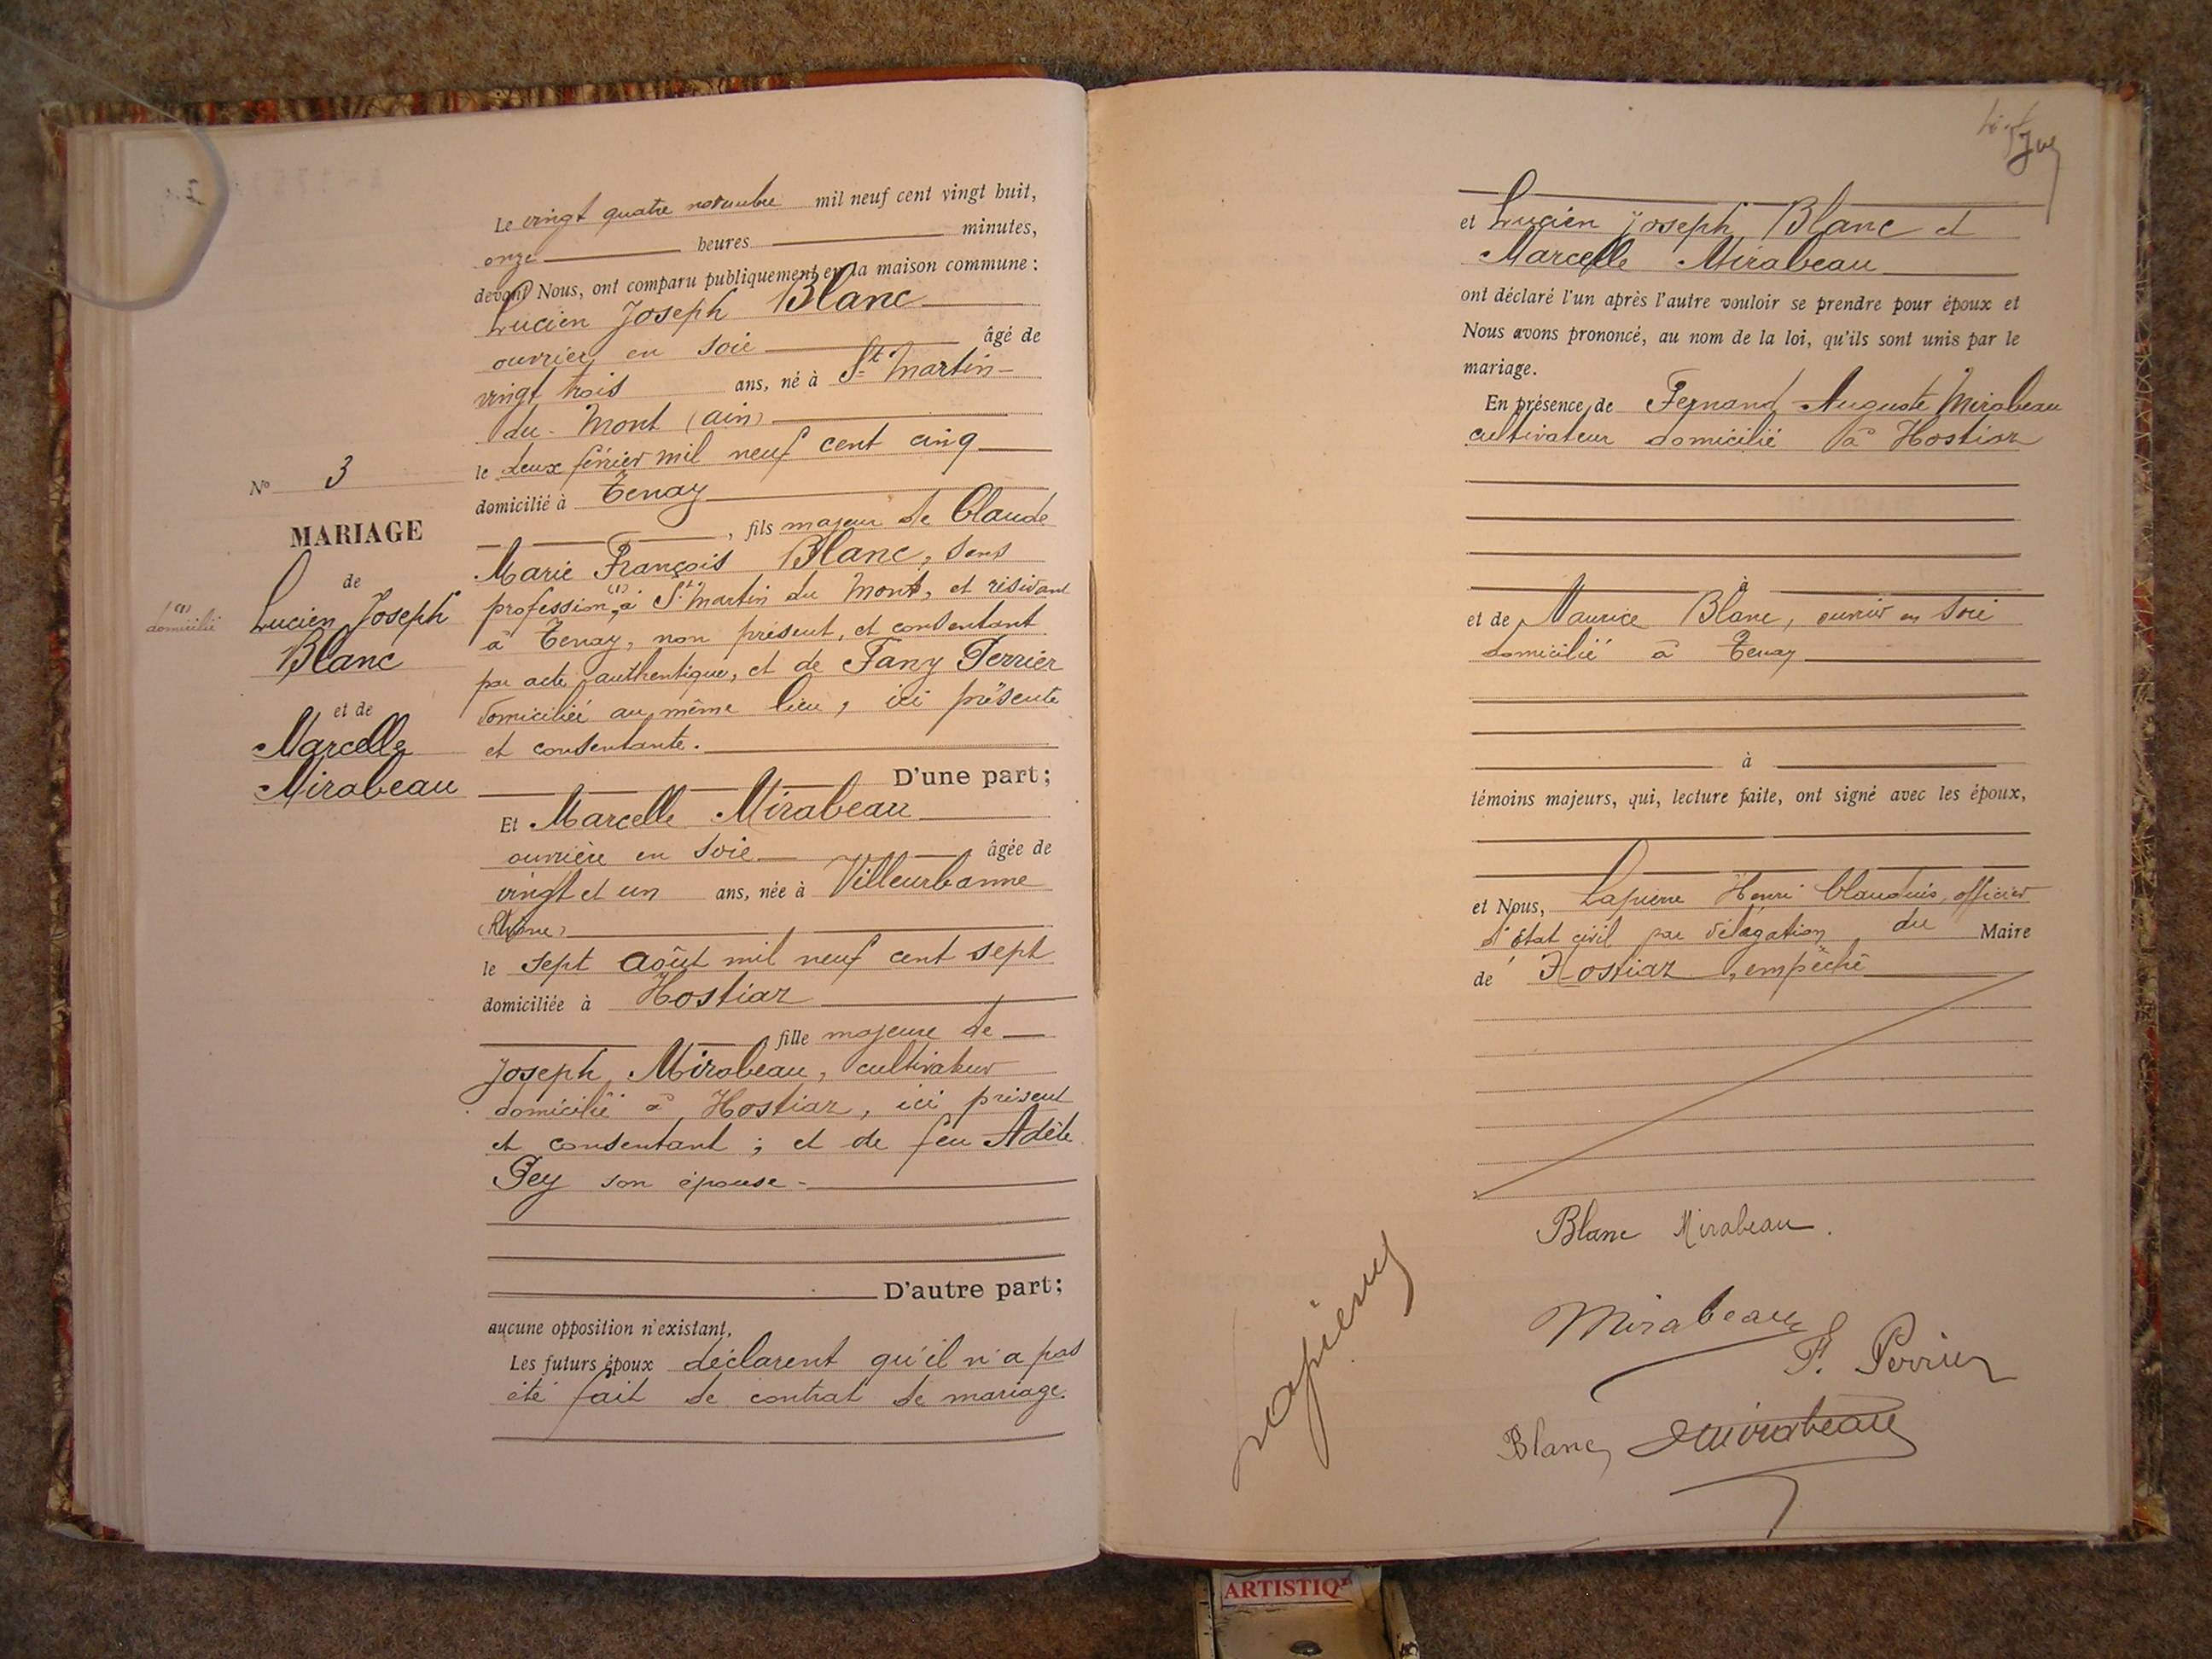 N° 3
MARIAGE
de
Lucien Joseph
Blanc
et de
Marcelle
Mirabeau
(1)
domicilié
Le vingt quatre novembre mil neuf cent vingt huit,
onze heures minutes,
devant Nous, ont comparu publiquement en la maison commune :
Lucien Joseph Blanc
ouvrier en soie âgé de
vingt trois ans, né à St Martin-
du-Mont (ain)
le deux février mil neuf cent cinq
domicilié à Tenay
, fils majeur de Claude
Marie François Blanc, sans
profession, (1) à St Martin du Mont, et résidant
à Tenay, non présent, et consentant
par acte authentique, et de Fany Perrier
domiciliée au même lieu, ici présente
et consentante.
D'une part;
Et Marcelle Mirabeau
ouvrière en soie âgée de
vingt et un ans, née à Villeurbanne
(Rhône)
le sept août mil neuf cent sept
domiciliée à Hostiaz
, fille majeure de
Joseph Mirabeau, cultivateur
domicilié à Hostiaz, ici présent
et consentant ; et de feu Adèle
Pey son épouse -
D'autre part;
aucune opposition n'existant,
Les futurs époux déclarent qu'il n'a pas
été fait de contrat de mariage.
et Lucien Joseph Blanc et
Marcelle Mirabeau
ont déclaré l'un après l'autre vouloir se prendre pour époux et
Nous avons prononcé, au nom de la loi, qu'ils sont unis par le
mariage.
En présence de Fernand Auguste Mirabeau
cultivateur domicilié à Hostiaz
à
et de Maurice Blanc, ouvrier en soie
domicilié à Tenay
à
témoins majeurs, qui, lecture faite, ont signé avec les époux,
et Nous, Lapierre Henri Claudius, officier
d'état civil par délégation du Maire
de Hostiaz, empêché
Blanc Mirabeau.
Mirabeau
F. Perrier
Blanc Mirabeau
Lapierre
ARTISTIQ